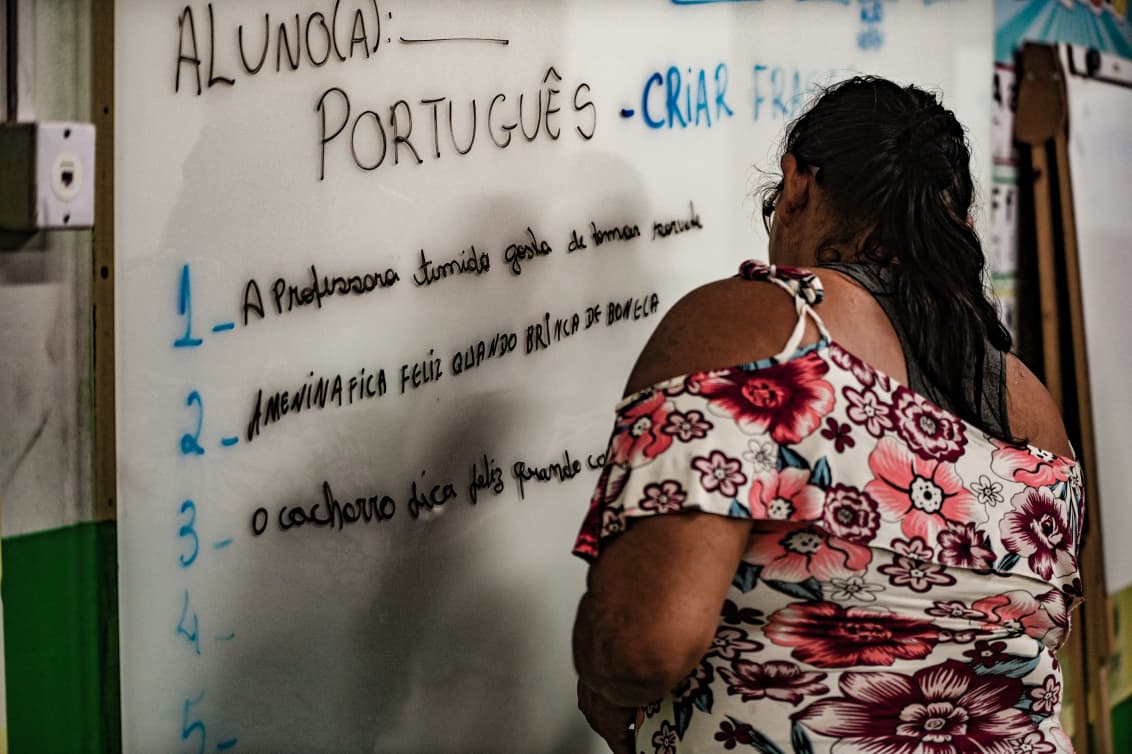 ALUNO(A): ______
PORTUGUÊS -CRIAR FRASES
1- A Professora timida gosta de tomar sorvete
2- A MENINA FICA FELIZ QUANDO BRINCA DE BONECA
3- O cachorro fica feliz quando co
4-
5-